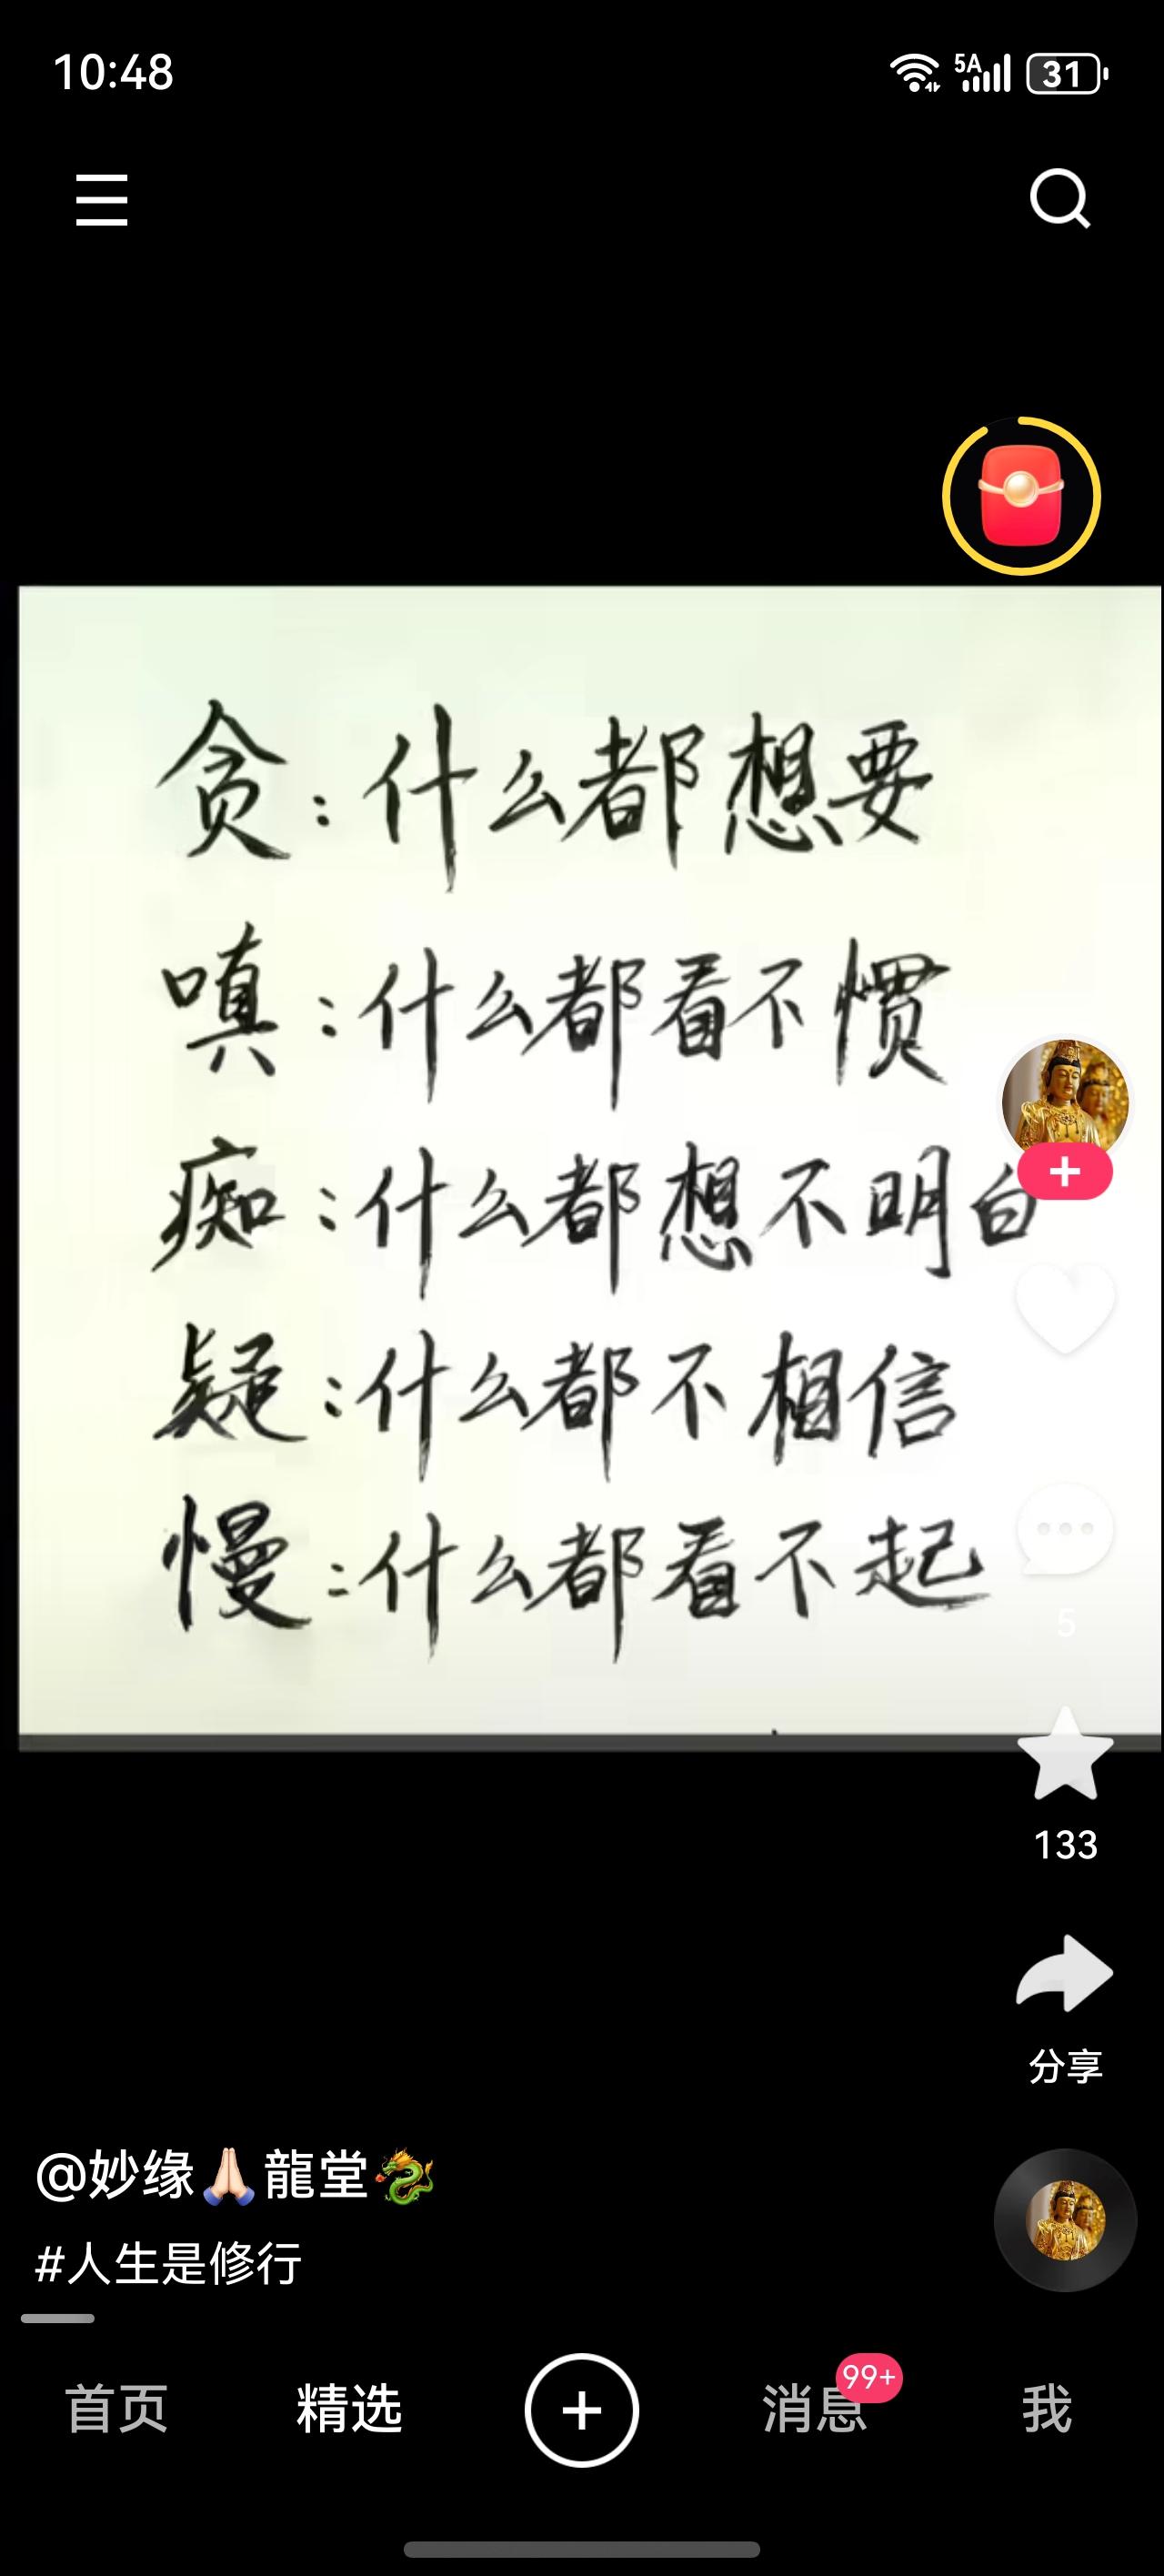 10:48
5A
31
贪：什么都想要
嗔：什么都看不惯
痴：什么都想不明白
疑：什么都不相信
慢：什么都看不起
5
133
分享
@妙缘🙏🏻龍堂🐉
#人生是修行
首页
精选
消息
99+
我